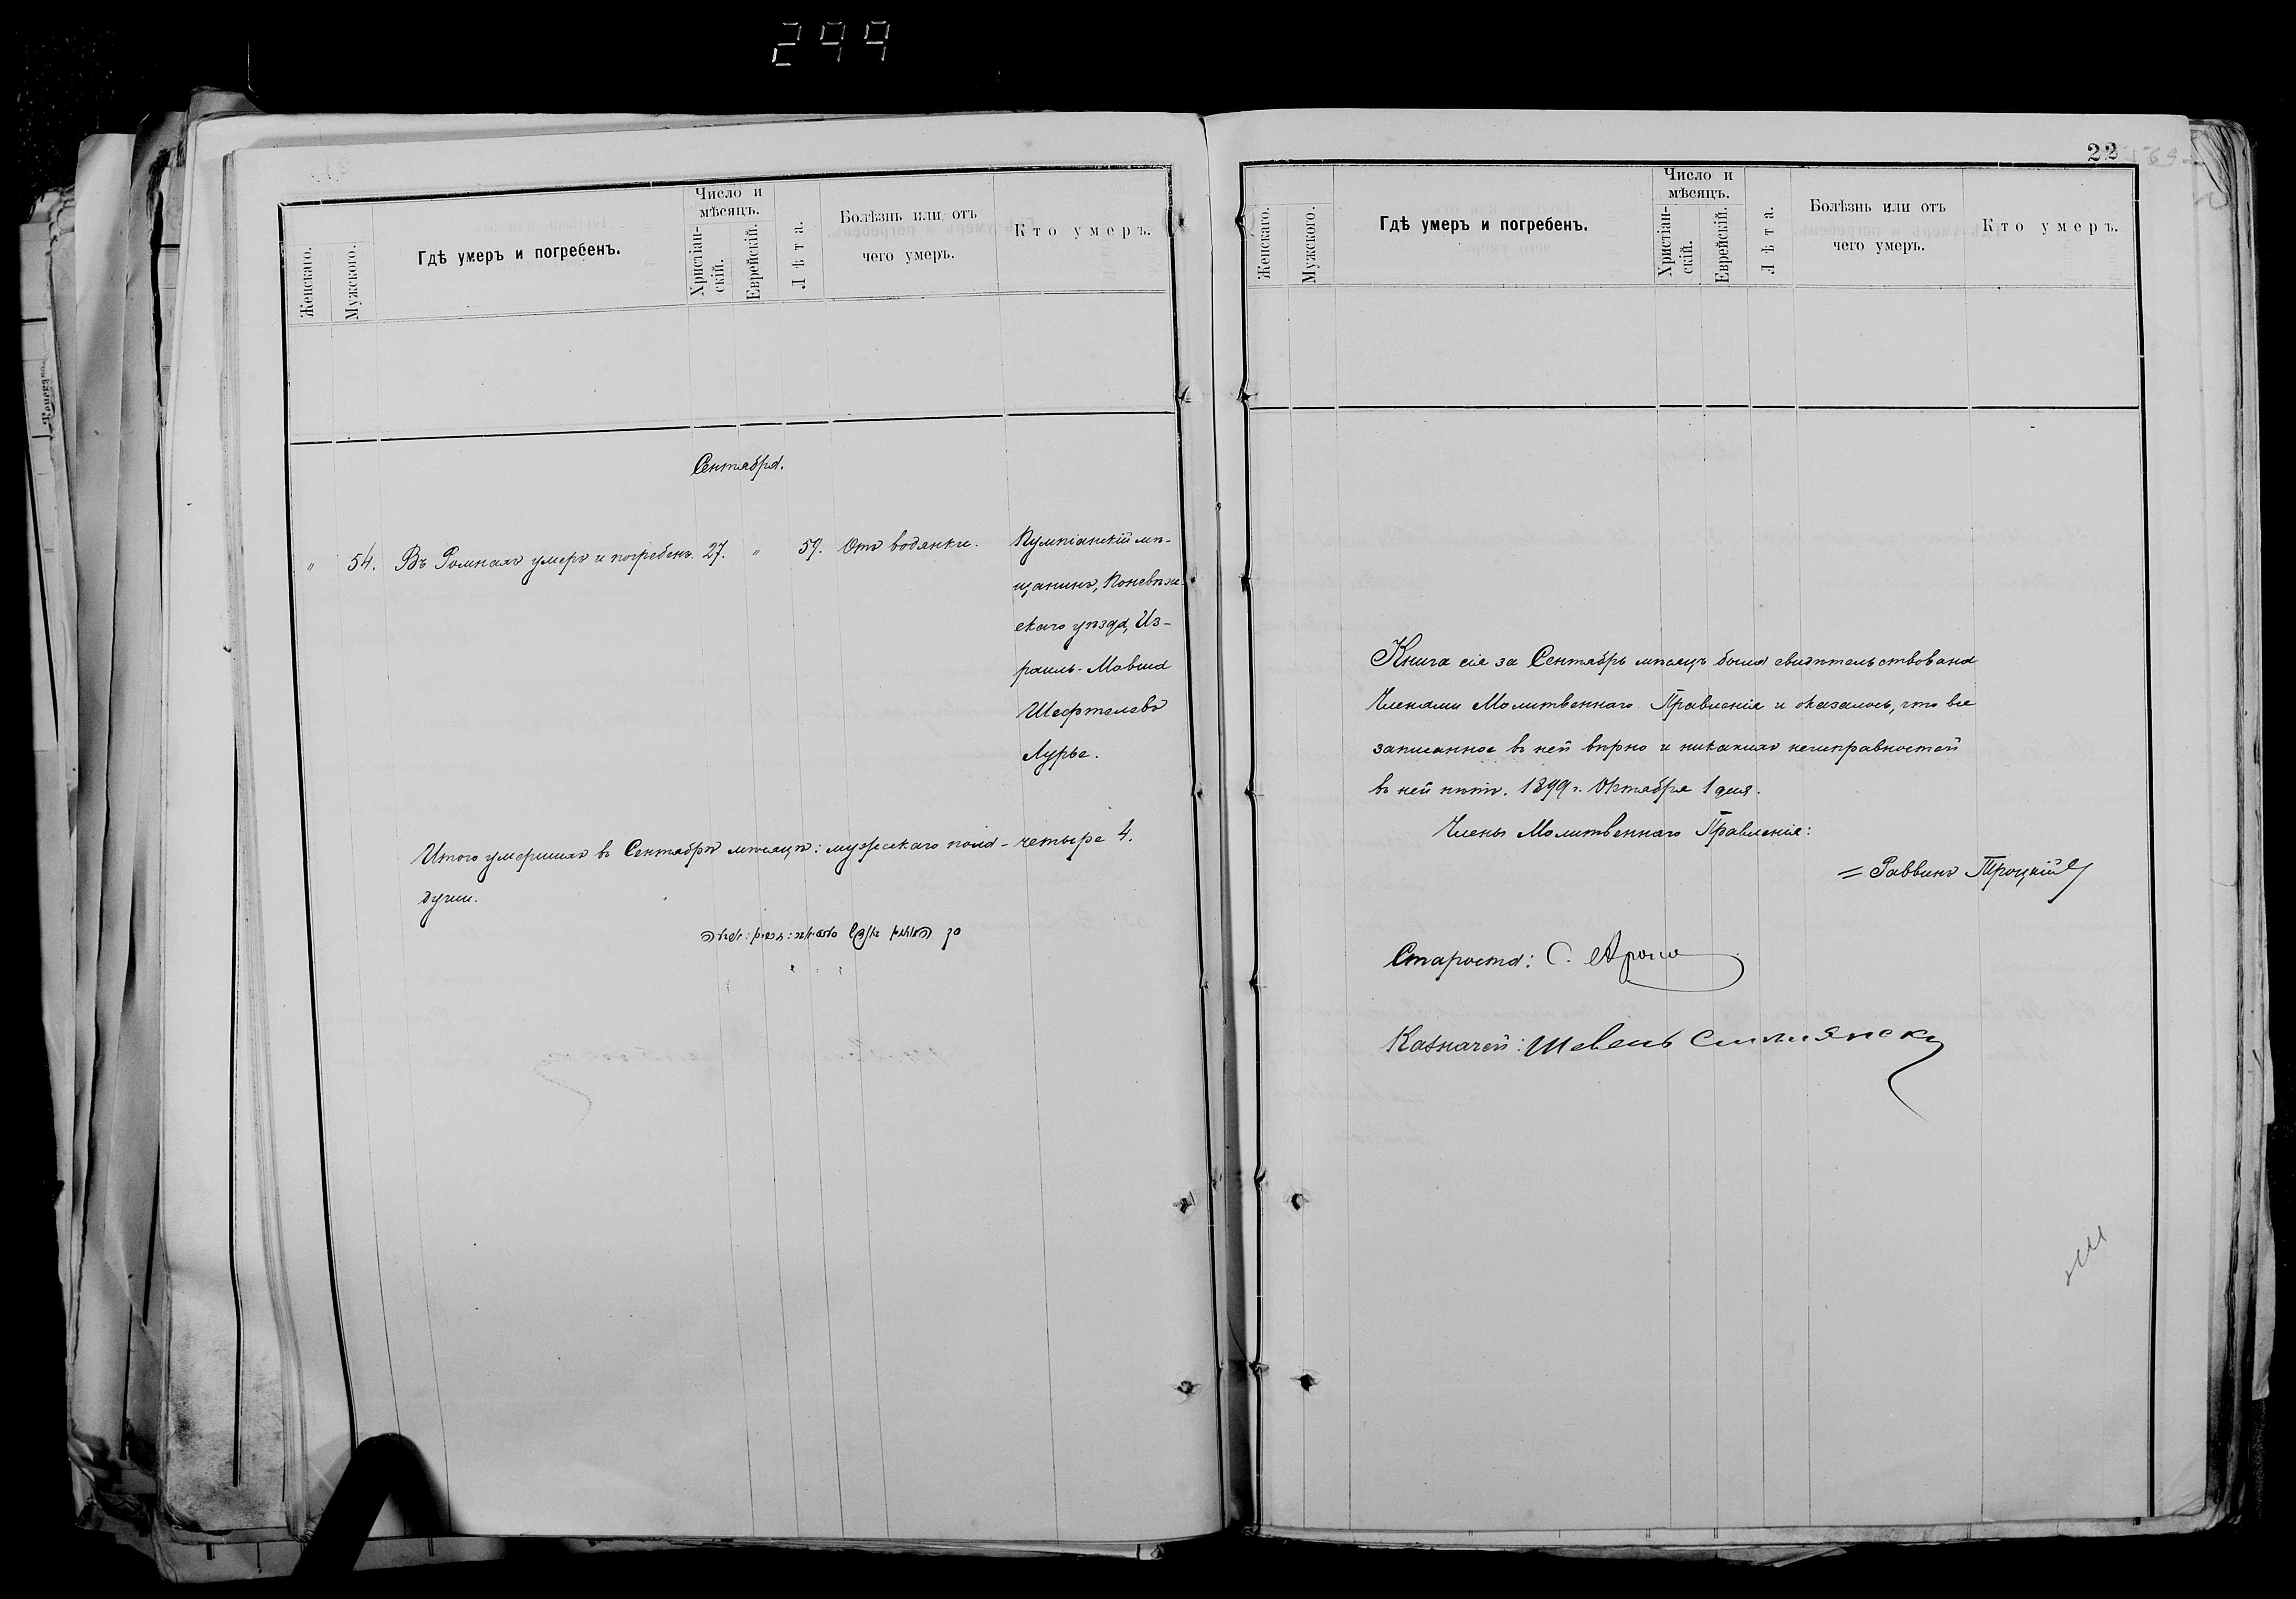 299
Женскаго.
Мужскаго.
Гдѣ умеръ и погребенъ.
Число и мѣсяцъ.
Христіан-
скій.
Еврейскій.
Лѣта.
Болѣзнь или отъ
чего умеръ.
Кто умеръ.
Сентября.
" 54. Въ Ромнахъ умеръ и погребенъ. 27. " 59. Отъ водянки. Кумпіанскій мѣ-
щанинъ, Поневѣж-
скаго уѣзда, Из-
раиль-Мовша
Шефтелевъ
Лурье.
Итого умершихъ въ Сентябрѣ мѣсяцѣ: мужескаго пола - четыре 4.
души.
22
Женскаго.
Мужскаго.
Гдѣ умеръ и погребенъ.
Число и
мѣсяцъ.
Христіан-
скій.
Еврейскій.
Лѣта.
Болѣзнь или отъ
чего умеръ.
Кто умеръ.
Книга сія за Сентябрь мѣсяцъ была свидѣтельствована
Членами Молитвеннаго Правленія и оказалось, что все
записанное въ ней вѣрно и никакихъ неисправностей
въ ней нѣтъ. 1899 г. Октября 1 дня.
Члены Молитвеннаго Правленія:
= Раввинъ Троцкій
Староста: С.
Казначей: